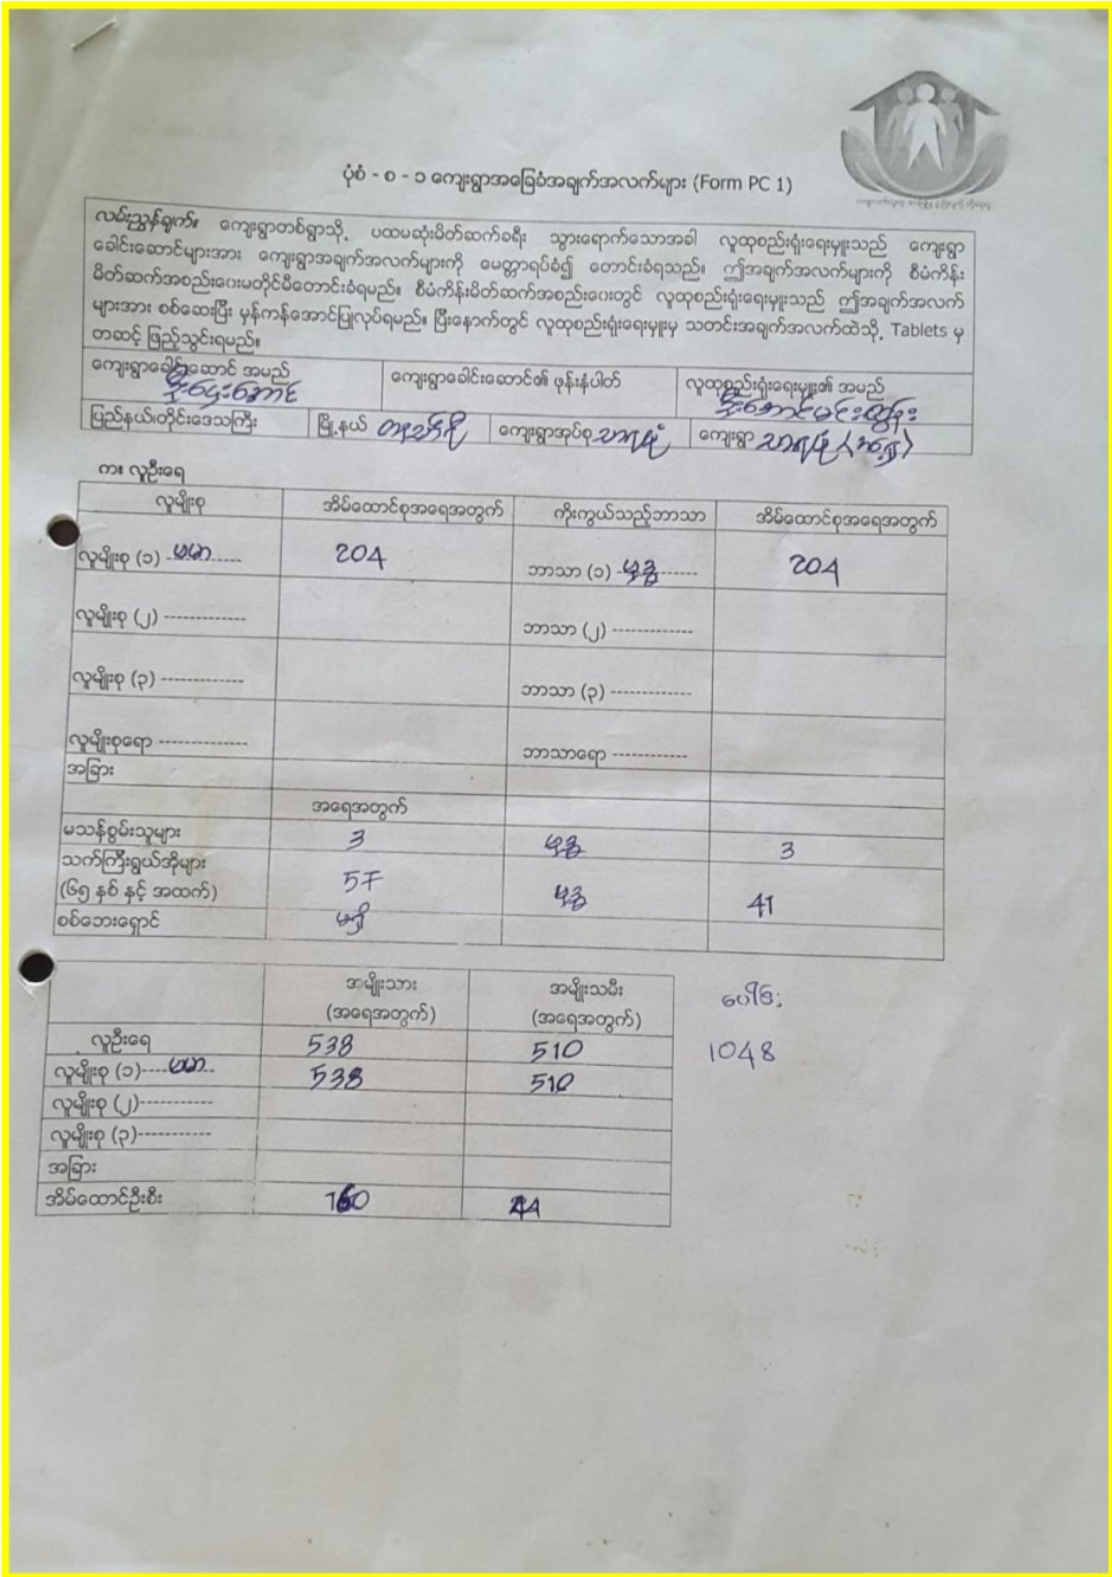 ပုံစံ - စ - ၁ ကျေးရွာအခြေခံအချက်အလက်များ (Form PC 1)
လမ်းညွှန်ချက်။ ကျေးရွာတစ်ရွာသို့ ပထမဆုံးမိတ်ဆက်ခရီး သွားရောက်သောအခါ လူထုစည်းရုံးရေးမှူးသည် ကျေးရွာ
ခေါင်းဆောင်များအား ကျေးရွာအချက်အလက်များကို မေတ္တာရပ်ခံ၍ တောင်းခံရသည်။ ဤအချက်အလက်များကို စီမံကိန်း
မိတ်ဆက်အစည်းဝေးမတိုင်မီတောင်းခံရမည်။ စီမံကိန်းမိတ်ဆက်အစည်းဝေးတွင် လူထုစည်းရုံးရေးမှူးသည် ဤအချက်အလက်
များအား စစ်ဆေးပြီး မှန်ကန်အောင်ပြုလုပ်ရမည်။ ပြီးနောက်တွင် လူထုစည်းရုံးရေးမှူးမှ သတင်းအချက်အလက်ထဲသို့ Tablets မှ
တဆင့် ဖြည့်သွင်းရမည်။
ကျေးရွာခေါင်းဆောင် အမည် ကျေးရွာခေါင်းဆောင်၏ ဖုန်းနံပါတ် လူထုစည်းရုံးရေးမှူး၏ အမည်
ဦးဌေးအောင် ဦးအောင်မင်းထွန်း
ပြည်နယ်၊တိုင်းဒေသကြီး မြို့နယ် ကျေးရွာအုပ်စု ကျေးရွာ
က။ လူဦးရေ
လူမျိုးစု အိမ်ထောင်စုအရေအတွက် ကိုးကွယ်သည့်ဘာသာ အိမ်ထောင်စုအရေအတွက်
လူမျိုးစု (၁) ဗမာ 204 ဘာသာ (၁) ဗုဒ္ဓ 204
လူမျိုးစု (၂) ------------- ဘာသာ (၂) -------------
လူမျိုးစု (၃) ------------- ဘာသာ (၃) -------------
လူမျိုးစုရော -------------- ဘာသာရော ------------
အခြား
အရေအတွက်
မသန်စွမ်းသူများ 3 ဗုဒ္ဓ 3
သက်ကြီးရွယ်အိုများ
(၆၅ နှစ် နှင့် အထက်) 57 ဗုဒ္ဓ 41
စစ်ဘေးရှောင် မရှိ
အမျိုးသား အမျိုးသမီး ပေါင်း
(အရေအတွက်) (အရေအတွက်)
လူဦးရေ 538 510 1048
လူမျိုးစု (၁)----ဗမာ-- 538 510
လူမျိုးစု (၂)-----------
လူမျိုးစု (၃)-----------
အခြား
အိမ်ထောင်ဦးစီး 160 44